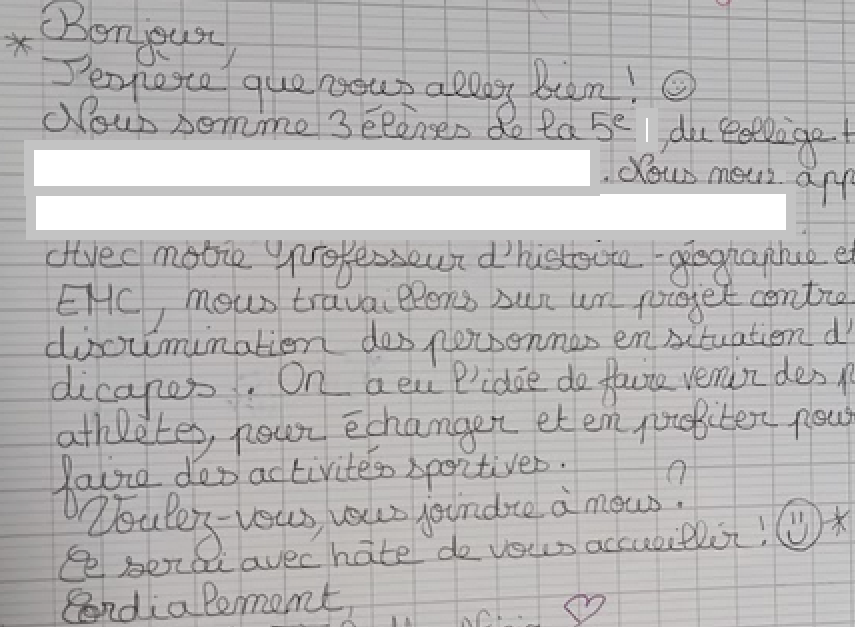 * Bonjour,
J'espère que vous allez bien ! ☺
Nous somme 3 élèves de la 5e , du Collège
. Nous nous app
Avec notre professeur d'histoire-géographie et
EMC, nous travaillons sur un projet contre
discrimination des personnes en situation d'
dicapes . On a eu l'idée de faire venir des p
athlètes, pour échanger et en profiter pour
faire des activités sportives.
Voulez-vous, vous joindre à nous ?
Ce serai avec hâte de vous accueillir ! ☺ *
Cordialement,